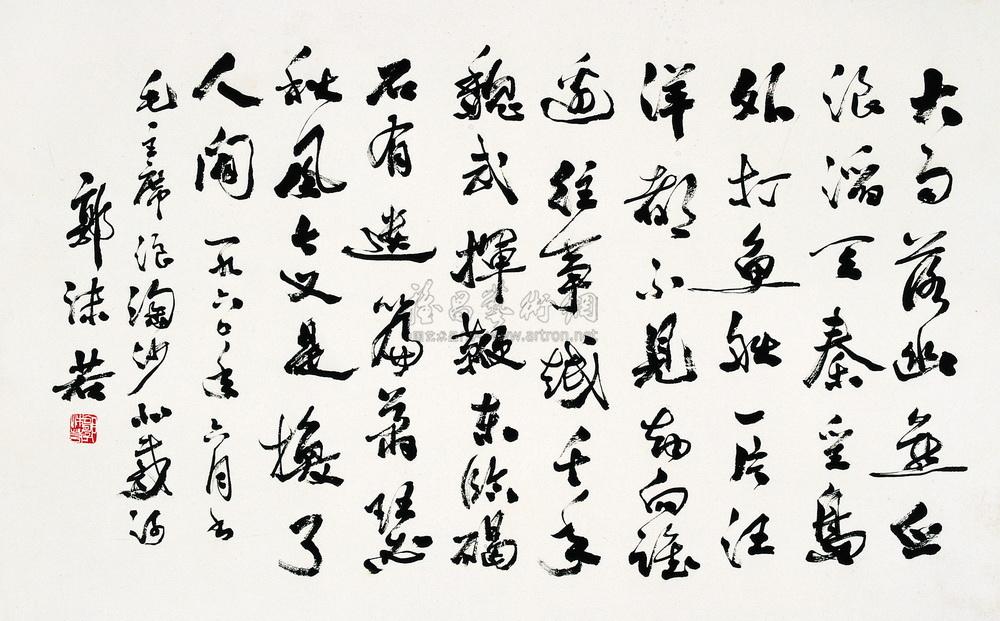 大雨落幽燕白
浪滔天秦皇島
外打魚船一片汪
洋都不見知向誰
邊往事越千年
魏武揮鞭東臨碣
石有遺篇蕭瑟
秋風今又是換了
人間 一九六〇年六月书
毛主席浪淘沙北戴河
郭沫若
雅昌藝術網
www.artron.net